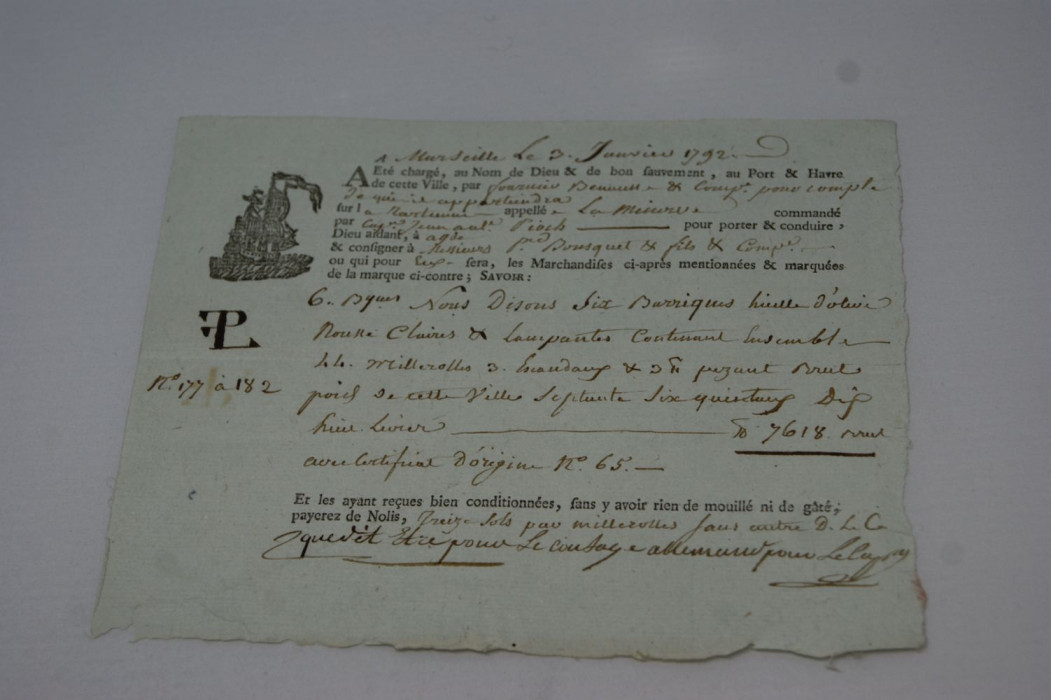 A Marseille Le 3. Janvier 1792.
A Eté chargé, au Nom de Dieu & de bon sauvement, au Port & Havre
de cette Ville, par fournier & Comp.e pour compte
de qui il appartiendra
sur la Tartanne appellée La Minerve commandé
par Cap.ne Jean pour porter & conduire,
Dieu aidant, à agde
& consigner à Messieurs P.re Bousquet & fils & Comp.e
ou qui pour Eux sera, les Marchandises ci-après mentionnées & marquées
de la marque ci-contre; SAVOIR:
6. Bques Nous Disons Six Barriques huille d'olive
Rousse Claires & Lampantes Contenant Ensemble
PL
44. Millerolles 3. Escandaux & pezant Brut
N.o 177 à 182
poids de cette Ville Septante Six quintaux Dix
huit Livres 7618 Brut
avec Certificat D'origine N.o 65.
Et les ayant reçues bien conditionnées, sans y avoir rien de mouillé ni de gâté;
payerez de Nolis, Treize sols par millerolles sans autre D. Le Ca
Etre pour Le allemand pour Le Cap